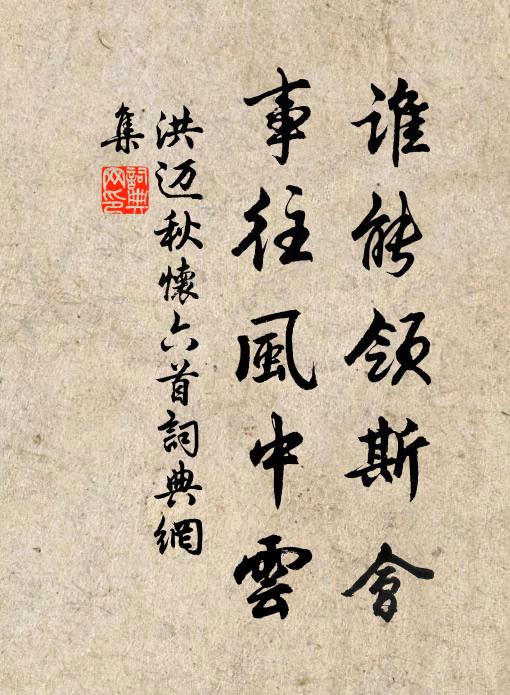 誰能領斯會
事往風中雲
洪迈秋懷六首詞典網
集
詞典
网印